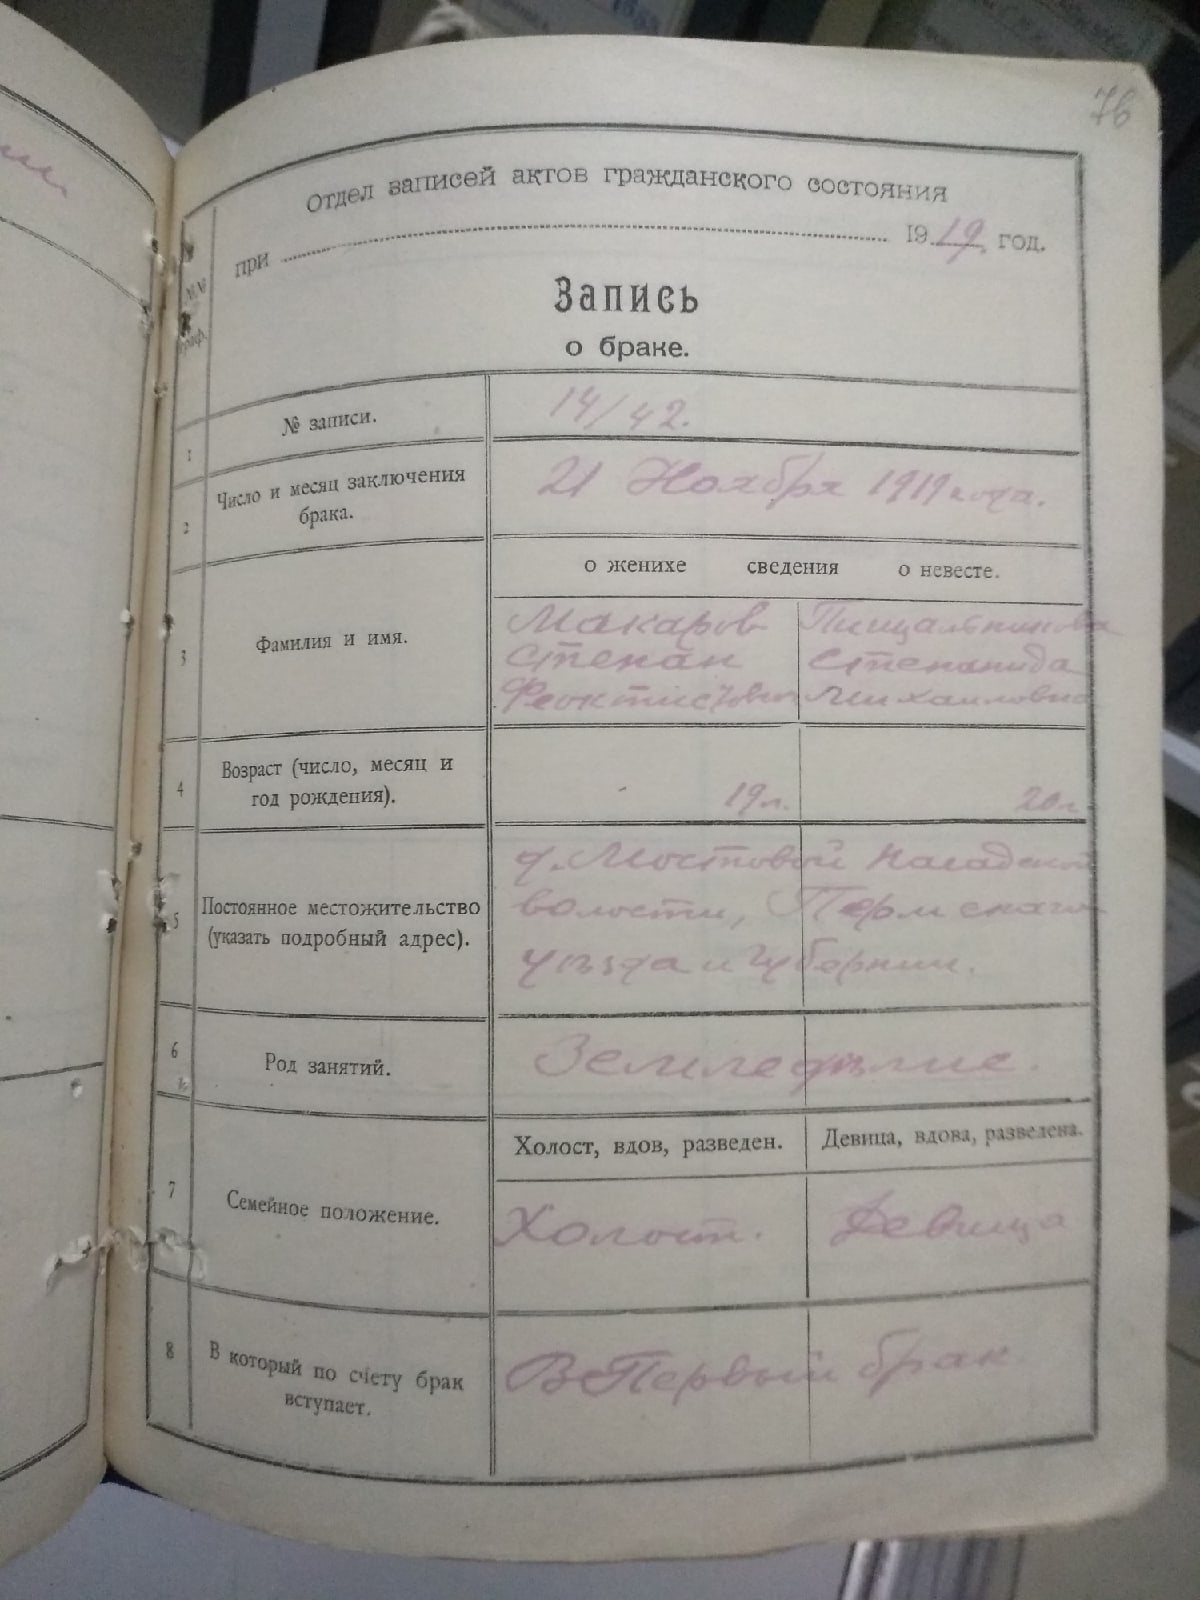 76
Отдел записей актов гражданского состояния
при 1919 год.
№№
граф.
Запись
о браке.
1 № записи. 14/42.
2 Число и месяц заключения
брака. 21 Ноября 1919 года.
о женихе сведения о невесте.
3 Фамилия и имя.
Макаров Пищальникова
Степан Степанида
Феоктистович Михаиловна
4 Возраст (число, месяц и
год рождения). 19 л. 20 л.
5 Постоянное местожительство
(указать подробный адрес).
д. Мостовой
волости, Пермскаго
уѣзда и губернии.
6 Род занятий. Земледѣлие.
Холост, вдов, разведен. Девица, вдова, разведена.
7 Семейное положение. Холост. Девица
8 В который по счету брак
вступает. В Первый брак